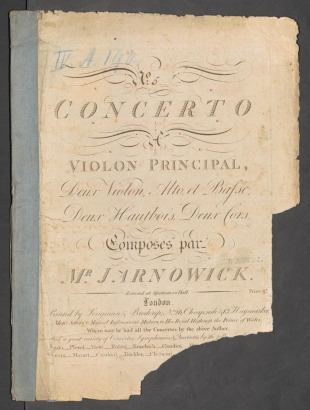 IV A 192
No. 5
CONCERTO
A
VIOLON PRINCIPAL,
Deux Violon, Alto, et Basse,
Deux Hautbois, Deux Cors,
Composés par
Mr. JARNOWICK.
Entered at Stationers Hall. Price
London
Printed by Longman & Broderip, No. 26 Cheapside & 13 Haymarket
Music Sellers & Musical Instrument Makers to His Royal Highness the Prince of Wales
Where may be had all the Concertos by the above Author.
great variety of Concertos, Symphonies, Quartetts by the
Pleyel
Mozart Clementi